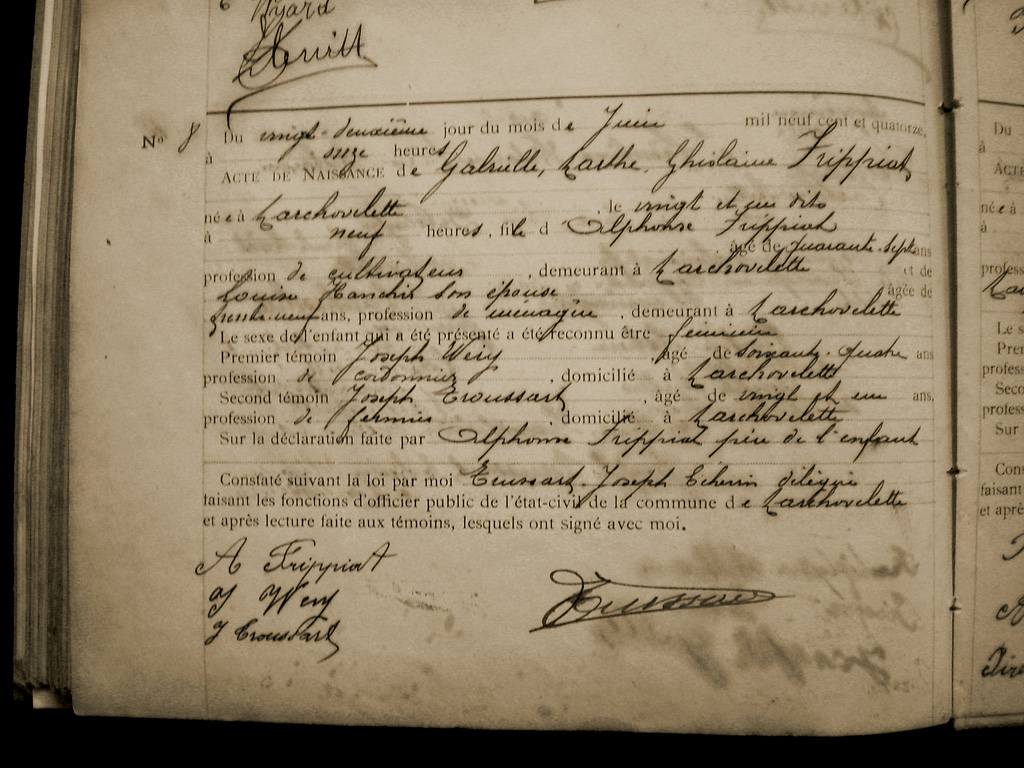 Nyard
N° 8 Du vingt-deuxième jour du mois de Juin mil neuf cent et quatorze,
à onze heures
ACTE DE NAISSANCE de Gabrielle, Marthe, Ghislaine Frippiat,
née à Marchovelette, le vingt et un dito
à neuf heures, fille d'Alphonse Frippiat
âgé de quarante-sept ans
profession de cultivateur, demeurant à Marchovelette et de
Louise Hanchir son épouse âgée de
trente-neuf ans, profession de ménagère, demeurant à Marchovelette
Le sexe de l'enfant qui a été présenté a été reconnu être féminin
Premier témoin Joseph Wéry, âgé de soixante-quatre ans
profession de cordonnier, domicilié à Marchovelette
Second témoin Joseph Troussart, âgé de vingt et un ans,
profession de fermier, domicilié à Marchovelette
Sur la déclaration faite par Alphonse Frippiat père de l'enfant
Constaté suivant la loi par moi Joseph délégué
faisant les fonctions d'officier public de l'état-civil de la commune de Marchovelette
et après lecture faite aux témoins, lesquels ont signé avec moi.
A Frippiat
J Wéry
J Troussart